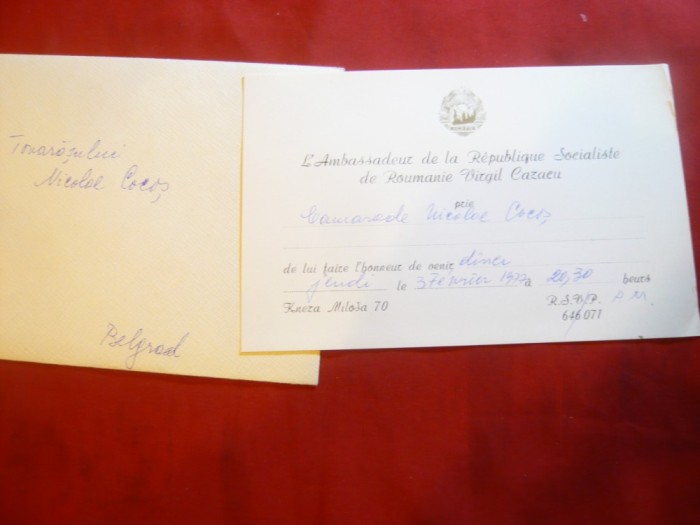 Tovarășului
Nicolae Cocoș
Belgrad
L'Ambassadeur de la République Socialiste
de Roumanie Virgil Cazacu
prie
Camarade Nicolae Cocoș
de lui faire l'honneur de venir dîner
jeudi le 3 Février 1977 à 20,30 heurs
Kneza Miloša 70 R.S.V.P. p.m.
646 071